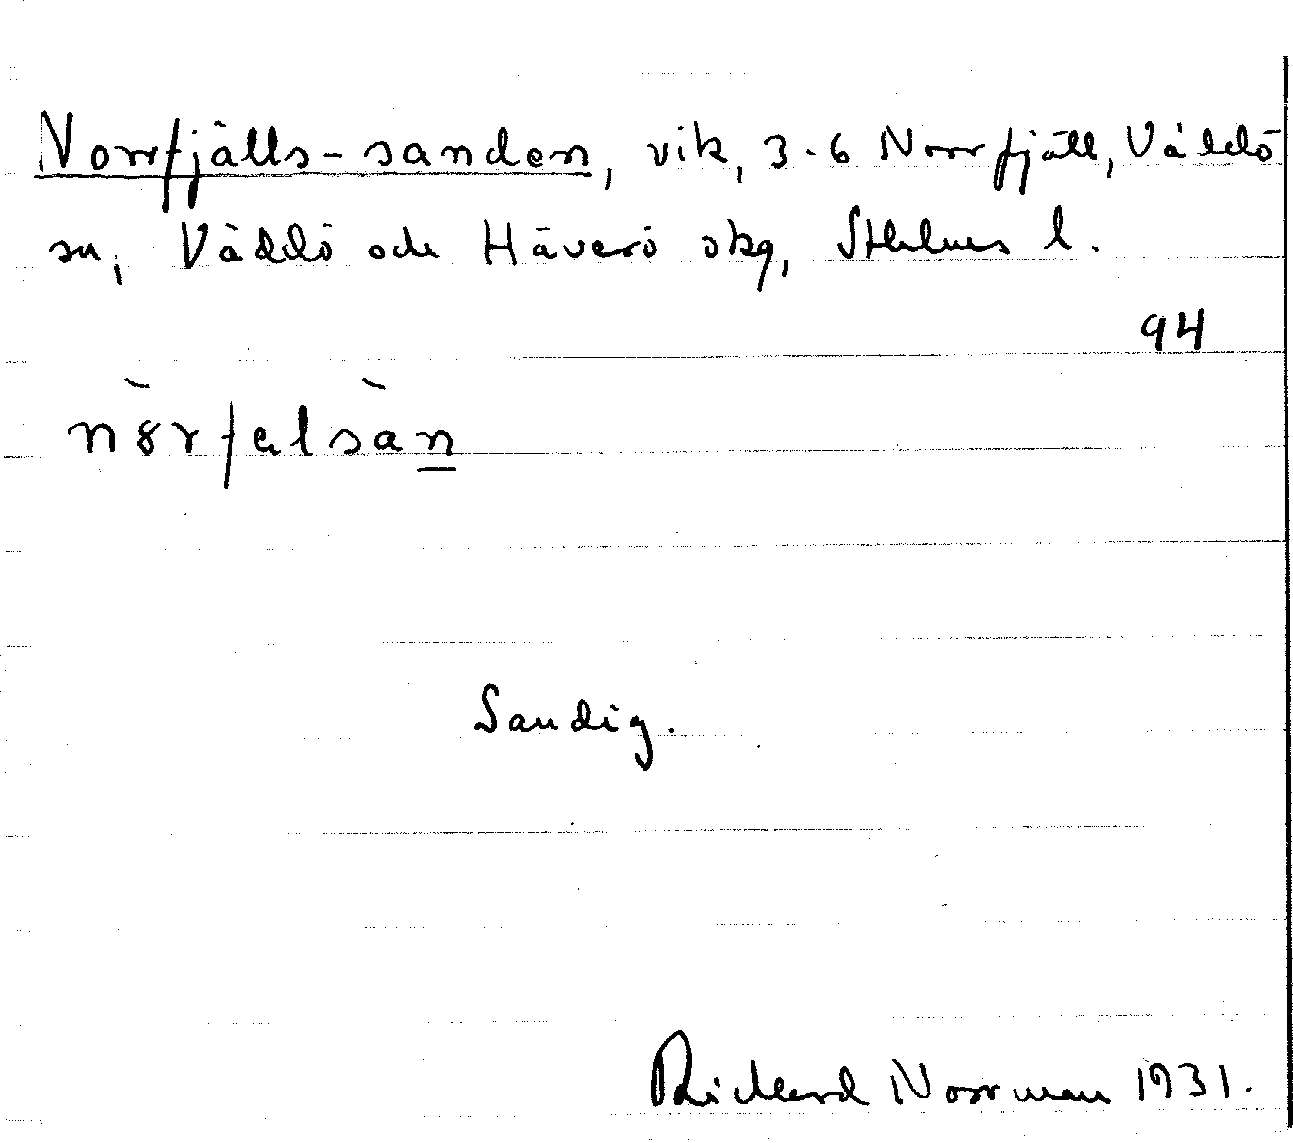 Norrfjälls-sanden, vik, 3-6 Norrfjäll, Väddö
sn, Väddö och Häverö skg, Sthlms l.
94
Sandig.
Rickard Norrman 1931.